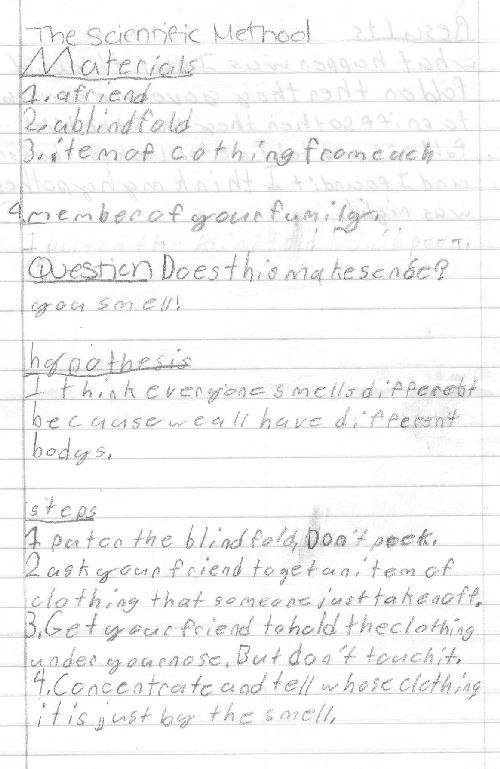 The Scientific Method
Materials
1. a friend
2. a blindfold
3. item of cothing from each
4 member of your family.
Question Does this make sense?
you smell!
hypothesis
I think everyone smells different
because we all have different
bodys.
steps
1 put on the blindfold, Don't peek.
2 ask your friend to get an item of
clothing that someone just taken off.
3. Get your friend to hold the clothing
under your nose. But don't touch it.
4. Concentrate and tell whose clothing
it is just by the smell.